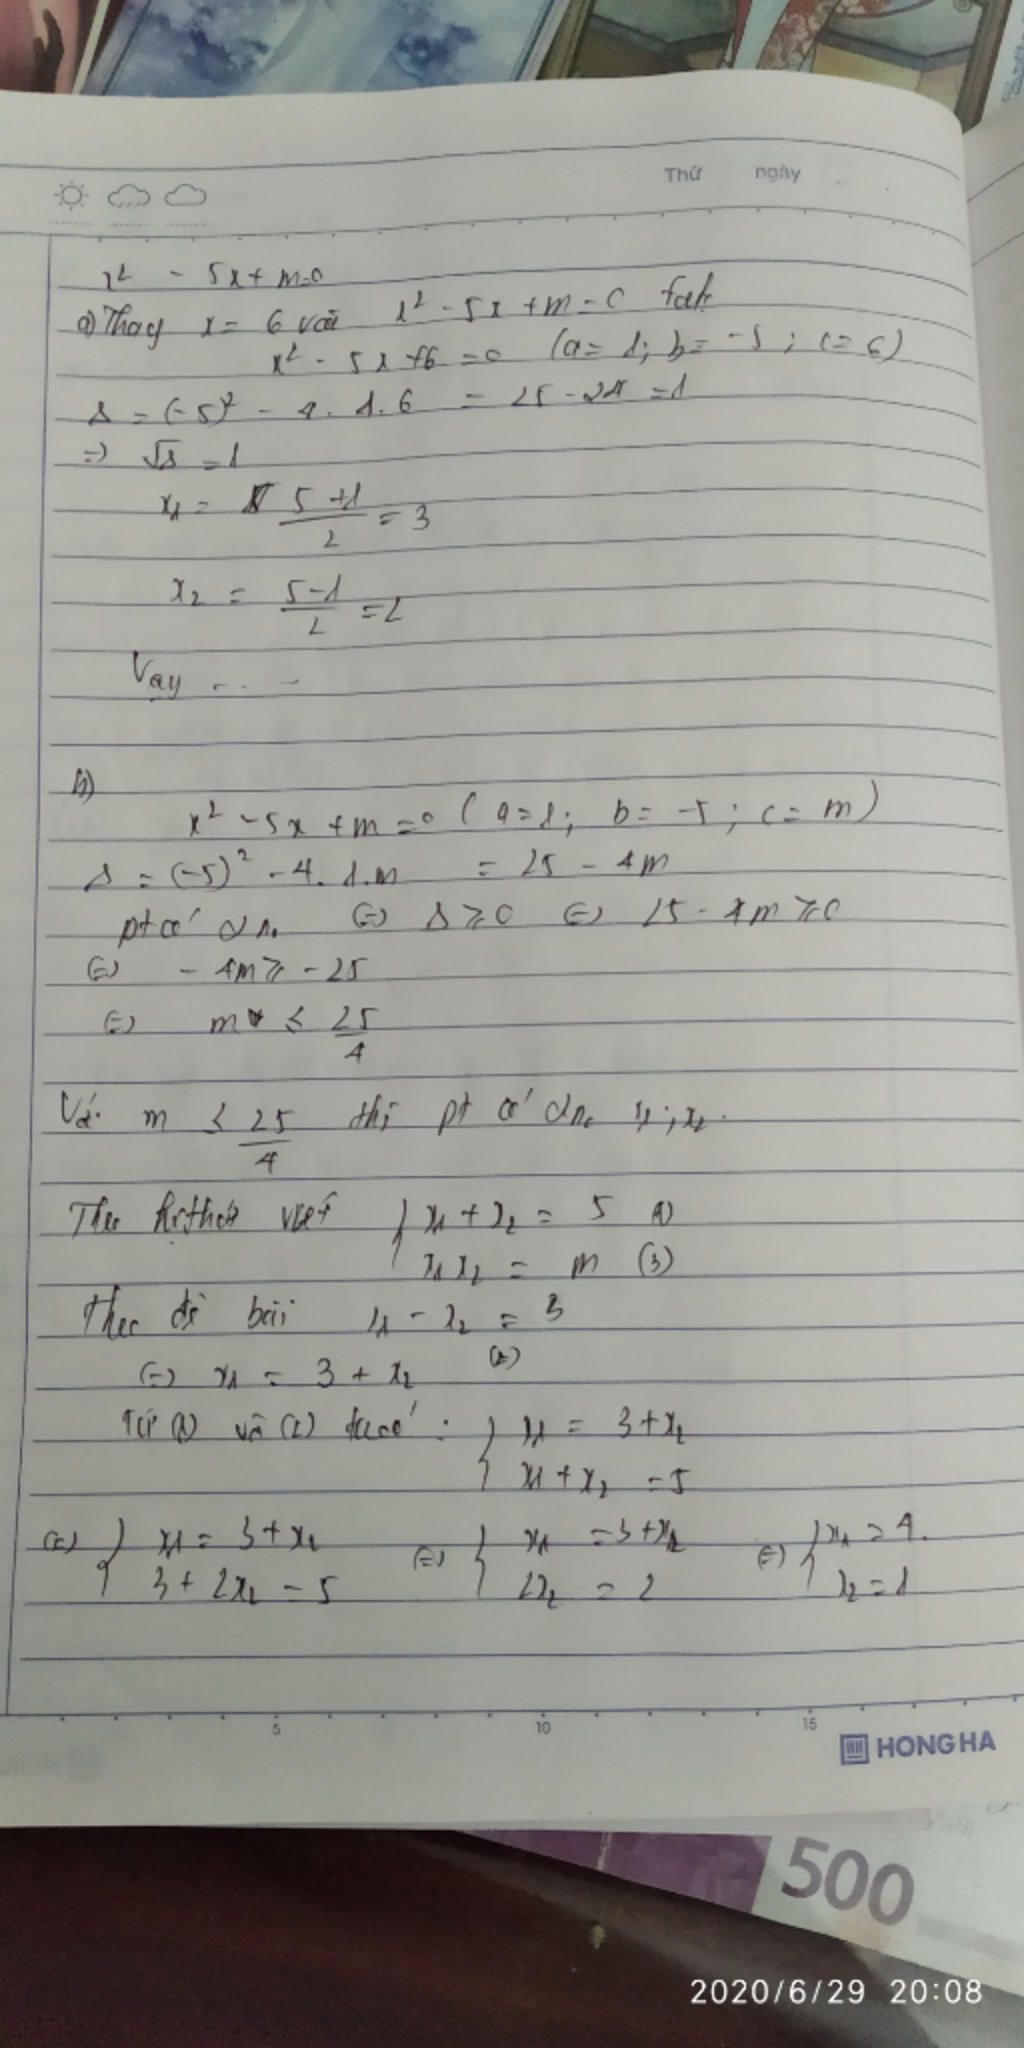 Thứ ngày
x² - 5x + m = 0
a) Thay x = 6 vào x² - 5x + m = 0
x² - 5x + 6 = 0 (a = 1; b = -5; c = 6)
Δ = (-5)² - 4.1.6 = 25 - 24 = 1
=> √Δ = 1
x₁ = 5+1/2 = 3
x₂ = 5-1/2 = 2
Vậy ...
b)
x² - 5x + m = 0 (a = 1; b = -5; c = m)
Δ = (-5)² - 4.1.m = 25 - 4m
pt có 2n₀ (=) Δ ≥ 0 (=) 25 - 4m ≥ 0
(=) - 4m ≥ - 25
(=) m ≤ 25/4
Với m ≤ 25/4 thì pt có 2n₀ x₁; x₂.
Theo hệ thức viet { x₁ + x₂ = 5 (1)
x₁x₂ = m (3)
Theo đề bài x₁ - x₂ = 3
(=) x₁ = 3 + x₂ (2)
Từ (1) và (2) ta có : { x₁ = 3 + x₂
x₁ + x₂ = 5
(=) { x₁ = 3 + x₂ (=) { x₁ = 3 + x₂ (=) { x₁ = 4.
3 + 2x₂ = 5 2x₂ = 2 x₂ = 1
5 10 15
HONG HA
500
2020/6/29 20:08